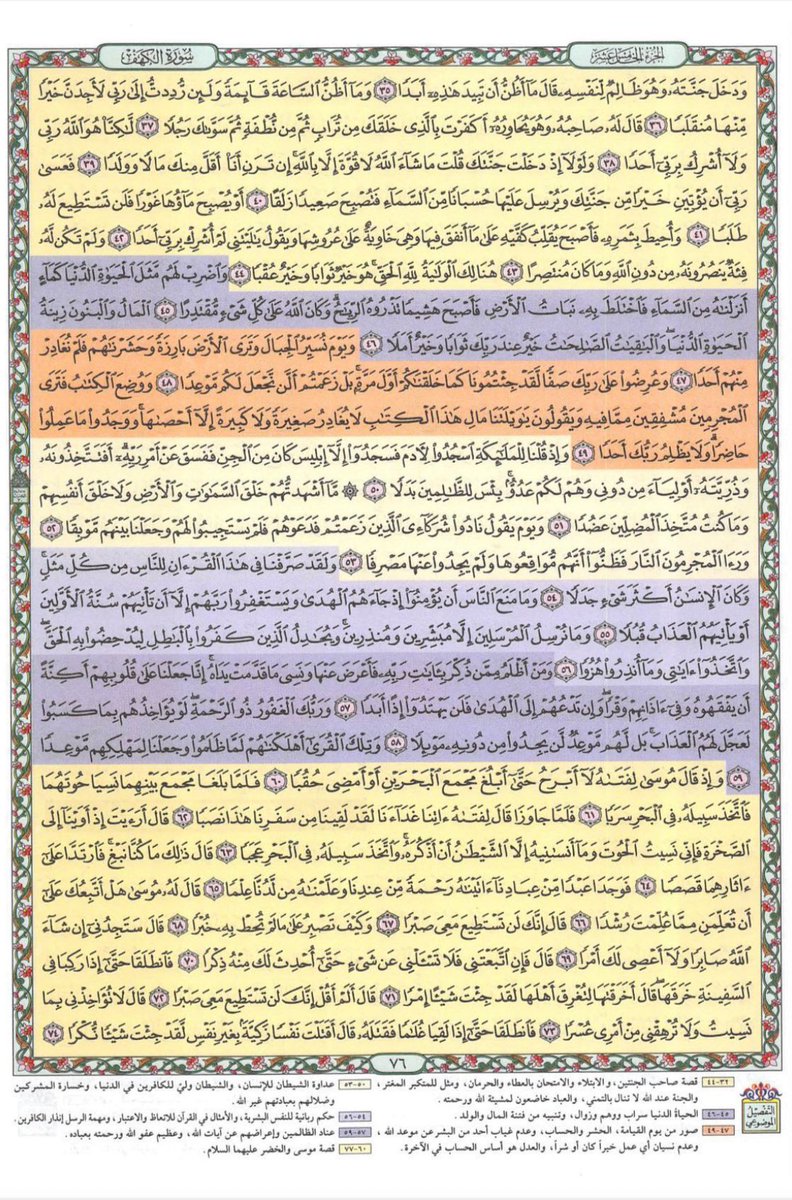 الجزء الخامس عشر
سورة الكهف
وَدَخَلَ جَنَّتَهُۥ وَهُوَ ظَالِمٌ لِّنَفْسِهِۦ قَالَ مَآ أَظُنُّ أَن تَبِيدَ هَٰذِهِۦٓ أَبَدًا ٣٥ وَمَآ أَظُنُّ ٱلسَّاعَةَ قَآئِمَةً وَلَئِن رُّدِدتُّ إِلَىٰ رَبِّى لَأَجِدَنَّ خَيْرًا
مِّنْهَا مُنقَلَبًا ٣٦ قَالَ لَهُۥ صَاحِبُهُۥ وَهُوَ يُحَاوِرُهُۥٓ أَكَفَرْتَ بِٱلَّذِى خَلَقَكَ مِن تُرَابٍ ثُمَّ مِن نُّطْفَةٍ ثُمَّ سَوَّىٰكَ رَجُلًا ٣٧ لَّٰكِنَّا۠ هُوَ ٱللَّهُ رَبِّى
وَلَآ أُشْرِكُ بِرَبِّىٓ أَحَدًا ٣٨ وَلَوْلَآ إِذْ دَخَلْتَ جَنَّتَكَ قُلْتَ مَا شَآءَ ٱللَّهُ لَا قُوَّةَ إِلَّا بِٱللَّهِ إِن تَرَنِ أَنَا۠ أَقَلَّ مِنكَ مَالًا وَوَلَدًا ٣٩ فَعَسَىٰ
رَبِّىٓ أَن يُؤْتِيَنِ خَيْرًا مِّن جَنَّتِكَ وَيُرْسِلَ عَلَيْهَا حُسْبَانًا مِّنَ ٱلسَّمَآءِ فَتُصْبِحَ صَعِيدًا زَلَقًا ٤٠ أَوْ يُصْبِحَ مَآؤُهَا غَوْرًا فَلَن تَسْتَطِيعَ لَهُۥ
طَلَبًا ٤١ وَأُحِيطَ بِثَمَرِهِۦ فَأَصْبَحَ يُقَلِّبُ كَفَّيْهِ عَلَىٰ مَآ أَنفَقَ فِيهَا وَهِىَ خَاوِيَةٌ عَلَىٰ عُرُوشِهَا وَيَقُولُ يَٰلَيْتَنِى لَمْ أُشْرِكْ بِرَبِّىٓ أَحَدًا ٤٢ وَلَمْ تَكُن لَّهُۥ
فِئَةٌ يَنصُرُونَهُۥ مِن دُونِ ٱللَّهِ وَمَا كَانَ مُنتَصِرًا ٤٣ هُنَالِكَ ٱلْوَلَٰيَةُ لِلَّهِ ٱلْحَقِّ هُوَ خَيْرٌ ثَوَابًا وَخَيْرٌ عُقْبًا ٤٤ وَٱضْرِبْ لَهُم مَّثَلَ ٱلْحَيَوٰةِ ٱلدُّنْيَا كَمَآءٍ
أَنزَلْنَٰهُ مِنَ ٱلسَّمَآءِ فَٱخْتَلَطَ بِهِۦ نَبَاتُ ٱلْأَرْضِ فَأَصْبَحَ هَشِيمًا تَذْرُوهُ ٱلرِّيَٰحُ وَكَانَ ٱللَّهُ عَلَىٰ كُلِّ شَىْءٍ مُّقْتَدِرًا ٤٥ ٱلْمَالُ وَٱلْبَنُونَ زِينَةُ
ٱلْحَيَوٰةِ ٱلدُّنْيَا وَٱلْبَٰقِيَٰتُ ٱلصَّٰلِحَٰتُ خَيْرٌ عِندَ رَبِّكَ ثَوَابًا وَخَيْرٌ أَمَلًا ٤٦ وَيَوْمَ نُسَيِّرُ ٱلْجِبَالَ وَتَرَى ٱلْأَرْضَ بَارِزَةً وَحَشَرْنَٰهُمْ فَلَمْ نُغَادِرْ
مِنْهُمْ أَحَدًا ٤٧ وَعُرِضُوا۟ عَلَىٰ رَبِّكَ صَفًّا لَّقَدْ جِئْتُمُونَا كَمَا خَلَقْنَٰكُمْ أَوَّلَ مَرَّةٍۭ بَلْ زَعَمْتُمْ أَلَّن نَّجْعَلَ لَكُم مَّوْعِدًا ٤٨ وَوُضِعَ ٱلْكِتَٰبُ فَتَرَى
ٱلْمُجْرِمِينَ مُشْفِقِينَ مِمَّا فِيهِ وَيَقُولُونَ يَٰوَيْلَتَنَا مَالِ هَٰذَا ٱلْكِتَٰبِ لَا يُغَادِرُ صَغِيرَةً وَلَا كَبِيرَةً إِلَّآ أَحْصَىٰهَا وَوَجَدُوا۟ مَا عَمِلُوا۟
حَاضِرًا وَلَا يَظْلِمُ رَبُّكَ أَحَدًا ٤٩ وَإِذْ قُلْنَا لِلْمَلَٰٓئِكَةِ ٱسْجُدُوا۟ لِءَادَمَ فَسَجَدُوٓا۟ إِلَّآ إِبْلِيسَ كَانَ مِنَ ٱلْجِنِّ فَفَسَقَ عَنْ أَمْرِ رَبِّهِۦٓ أَفَتَتَّخِذُونَهُۥ
وَذُرِّيَّتَهُۥٓ أَوْلِيَآءَ مِن دُونِى وَهُمْ لَكُمْ عَدُوٌّۢ بِئْسَ لِلظَّٰلِمِينَ بَدَلًا ٥٠ ۞ مَّآ أَشْهَدتُّهُمْ خَلْقَ ٱلسَّمَٰوَٰتِ وَٱلْأَرْضِ وَلَا خَلْقَ أَنفُسِهِمْ
وَمَا كُنتُ مُتَّخِذَ ٱلْمُضِلِّينَ عَضُدًا ٥١ وَيَوْمَ يَقُولُ نَادُوا۟ شُرَكَآءِىَ ٱلَّذِينَ زَعَمْتُمْ فَدَعَوْهُمْ فَلَمْ يَسْتَجِيبُوا۟ لَهُمْ وَجَعَلْنَا بَيْنَهُم مَّوْبِقًا ٥٢
وَرَءَا ٱلْمُجْرِمُونَ ٱلنَّارَ فَظَنُّوٓا۟ أَنَّهُم مُّوَاقِعُوهَا وَلَمْ يَجِدُوا۟ عَنْهَا مَصْرِفًا ٥٣ وَلَقَدْ صَرَّفْنَا فِى هَٰذَا ٱلْقُرْءَانِ لِلنَّاسِ مِن كُلِّ مَثَلٍ
وَكَانَ ٱلْإِنسَٰنُ أَكْثَرَ شَىْءٍ جَدَلًا ٥٤ وَمَا مَنَعَ ٱلنَّاسَ أَن يُؤْمِنُوٓا۟ إِذْ جَآءَهُمُ ٱلْهُدَىٰ وَيَسْتَغْفِرُوا۟ رَبَّهُمْ إِلَّآ أَن تَأْتِيَهُمْ سُنَّةُ ٱلْأَوَّلِينَ
أَوْ يَأْتِيَهُمُ ٱلْعَذَابُ قُبُلًا ٥٥ وَمَا نُرْسِلُ ٱلْمُرْسَلِينَ إِلَّا مُبَشِّرِينَ وَمُنذِرِينَ وَيُجَٰدِلُ ٱلَّذِينَ كَفَرُوا۟ بِٱلْبَٰطِلِ لِيُدْحِضُوا۟ بِهِ ٱلْحَقَّ
وَٱتَّخَذُوٓا۟ ءَايَٰتِى وَمَآ أُنذِرُوا۟ هُزُوًا ٥٦ وَمَنْ أَظْلَمُ مِمَّن ذُكِّرَ بِـَٔايَٰتِ رَبِّهِۦ فَأَعْرَضَ عَنْهَا وَنَسِىَ مَا قَدَّمَتْ يَدَاهُ إِنَّا جَعَلْنَا عَلَىٰ قُلُوبِهِمْ أَكِنَّةً
أَن يَفْقَهُوهُ وَفِىٓ ءَاذَانِهِمْ وَقْرًا وَإِن تَدْعُهُمْ إِلَى ٱلْهُدَىٰ فَلَن يَهْتَدُوٓا۟ إِذًا أَبَدًا ٥٧ وَرَبُّكَ ٱلْغَفُورُ ذُو ٱلرَّحْمَةِ لَوْ يُؤَاخِذُهُم بِمَا كَسَبُوا۟
لَعَجَّلَ لَهُمُ ٱلْعَذَابَ بَل لَّهُم مَّوْعِدٌ لَّن يَجِدُوا۟ مِن دُونِهِۦ مَوْئِلًا ٥٨ وَتِلْكَ ٱلْقُرَىٰٓ أَهْلَكْنَٰهُمْ لَمَّا ظَلَمُوا۟ وَجَعَلْنَا لِمَهْلِكِهِم مَّوْعِدًا
٥٩ وَإِذْ قَالَ مُوسَىٰ لِفَتَىٰهُ لَآ أَبْرَحُ حَتَّىٰٓ أَبْلُغَ مَجْمَعَ ٱلْبَحْرَيْنِ أَوْ أَمْضِىَ حُقُبًا ٦٠ فَلَمَّا بَلَغَا مَجْمَعَ بَيْنِهِمَا نَسِيَا حُوتَهُمَا
فَٱتَّخَذَ سَبِيلَهُۥ فِى ٱلْبَحْرِ سَرَبًا ٦١ فَلَمَّا جَاوَزَا قَالَ لِفَتَىٰهُ ءَاتِنَا غَدَآءَنَا لَقَدْ لَقِينَا مِن سَفَرِنَا هَٰذَا نَصَبًا ٦٢ قَالَ أَرَءَيْتَ إِذْ أَوَيْنَآ إِلَى
ٱلصَّخْرَةِ فَإِنِّى نَسِيتُ ٱلْحُوتَ وَمَآ أَنسَىٰنِيهُ إِلَّا ٱلشَّيْطَٰنُ أَنْ أَذْكُرَهُۥ وَٱتَّخَذَ سَبِيلَهُۥ فِى ٱلْبَحْرِ عَجَبًا ٦٣ قَالَ ذَٰلِكَ مَا كُنَّا نَبْغِ فَٱرْتَدَّا عَلَىٰٓ
ءَاثَارِهِمَا قَصَصًا ٦٤ فَوَجَدَا عَبْدًا مِّنْ عِبَادِنَآ ءَاتَيْنَٰهُ رَحْمَةً مِّنْ عِندِنَا وَعَلَّمْنَٰهُ مِن لَّدُنَّا عِلْمًا ٦٥ قَالَ لَهُۥ مُوسَىٰ هَلْ أَتَّبِعُكَ عَلَىٰٓ
أَن تُعَلِّمَنِ مِمَّا عُلِّمْتَ رُشْدًا ٦٦ قَالَ إِنَّكَ لَن تَسْتَطِيعَ مَعِىَ صَبْرًا ٦٧ وَكَيْفَ تَصْبِرُ عَلَىٰ مَا لَمْ تُحِطْ بِهِۦ خُبْرًا ٦٨ قَالَ سَتَجِدُنِىٓ إِن شَآءَ
ٱللَّهُ صَابِرًا وَلَآ أَعْصِى لَكَ أَمْرًا ٦٩ قَالَ فَإِنِ ٱتَّبَعْتَنِى فَلَا تَسْـَٔلْنِى عَن شَىْءٍ حَتَّىٰٓ أُحْدِثَ لَكَ مِنْهُ ذِكْرًا ٧٠ فَٱنطَلَقَا حَتَّىٰٓ إِذَا رَكِبَا فِى
ٱلسَّفِينَةِ خَرَقَهَا قَالَ أَخَرَقْتَهَا لِتُغْرِقَ أَهْلَهَا لَقَدْ جِئْتَ شَيْـًٔا إِمْرًا ٧١ قَالَ أَلَمْ أَقُلْ إِنَّكَ لَن تَسْتَطِيعَ مَعِىَ صَبْرًا ٧٢ قَالَ لَا تُؤَاخِذْنِى بِمَا
نَسِيتُ وَلَا تُرْهِقْنِى مِنْ أَمْرِى عُسْرًا ٧٣ فَٱنطَلَقَا حَتَّىٰٓ إِذَا لَقِيَا غُلَٰمًا فَقَتَلَهُۥ قَالَ أَقَتَلْتَ نَفْسًا زَكِيَّةًۢ بِغَيْرِ نَفْسٍ لَّقَدْ جِئْتَ شَيْـًٔا نُّكْرًا ٧٤
٧٦
التفصيل الموضوعي
٣٢-٤٤ قصة صاحب الجنتين، والابتلاء والامتحان بالعطاء والحرمان، ومثل للمتكبر المغتر،
والجنة عند الله لا تنال بالتمني، والعباد خاضعون لمشيئة الله ورحمته.
٤٥-٤٦ الحياة الدنيا سراب ووهم وزوال، وتنبيه من فتنة المال والولد.
٤٧-٤٩ صور من يوم القيامة، الحشر والحساب، وعدم غياب أحد من البشر عن موعد الله،
وعدم نسيان أي عمل خيراً كان أو شراً، والعدل هو أساس الحساب في الآخرة.
٥٠-٥٣ عداوة الشيطان للإنسان، والشيطان وليّ للكافرين في الدنيا، وخسارة المشركين
وضلالهم بعبادتهم غير الله.
٥٤-٥٦ حكم ربانية للنفس البشرية، والأمثال في القرآن للاتعاظ والاعتبار، ومهمة الرسل إنذار الكافرين.
٥٧-٥٩ عناد الظالمين وإعراضهم عن آيات الله، وعظيم عفو الله ورحمته بعباده.
٦٠-٧٧ قصة موسى والخضر عليهما السلام.